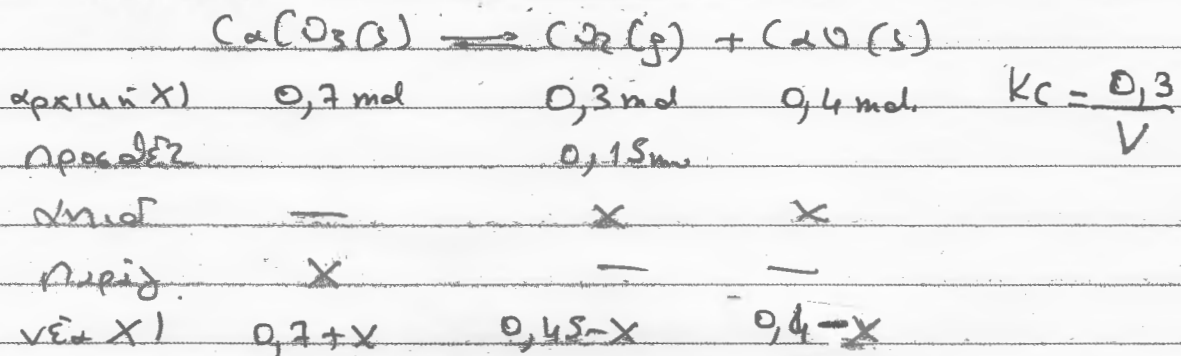 CaCO3(s) ⇌ CO2(g) + CaO(s)
αρχική ΧΙ 0,7 mol 0,3 mol 0,4 mol. Kc = 0,3/V
προσθέτ 0,15m
αντιδ — x x
παράγ. x — —
νέα ΧΙ 0,7+x 0,45-x 0,4-x